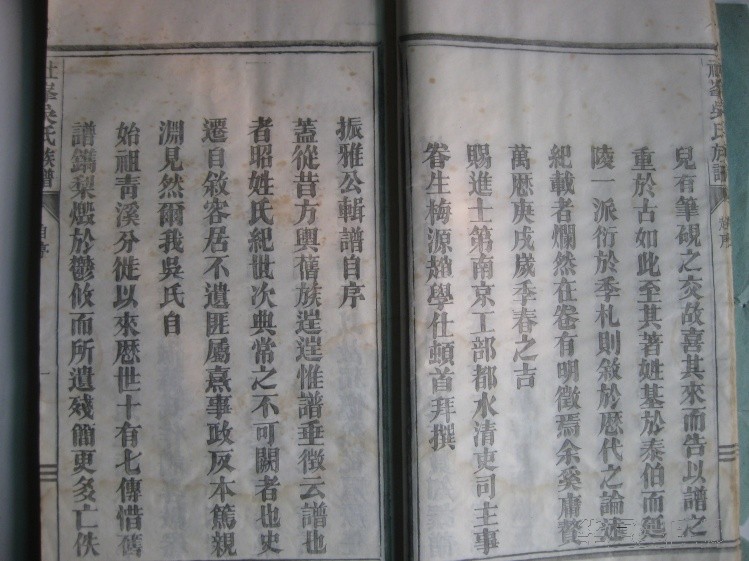 兒有筆硯之交故喜其來而告以譜之
重於古如此至其著姓基於泰伯而延
陵一派衍於季札則敘於歷代之論述
紀載者爛然在卷有明徵焉余奚庸贅
萬歷庚戌歲季春之吉
賜進士第南京工部都水清吏司主事
眷生梅源趙學仕頓首拜撰
吳氏族譜
振雅公輯譜自序
蓋從昔方輿舊族遑遑惟譜垂徵云譜也
者昭姓氏紀世次典常之不可闕者也史
遷自敘客居不遺匪屬熹事政反本篤親
淵見然爾我吳氏自
始祖青溪分徙以來歷世十有七傳惜舊
譜鐫梨燬於鬱攸而所遺殘簡更多亡佚
峯吳氏族譜
自序
一